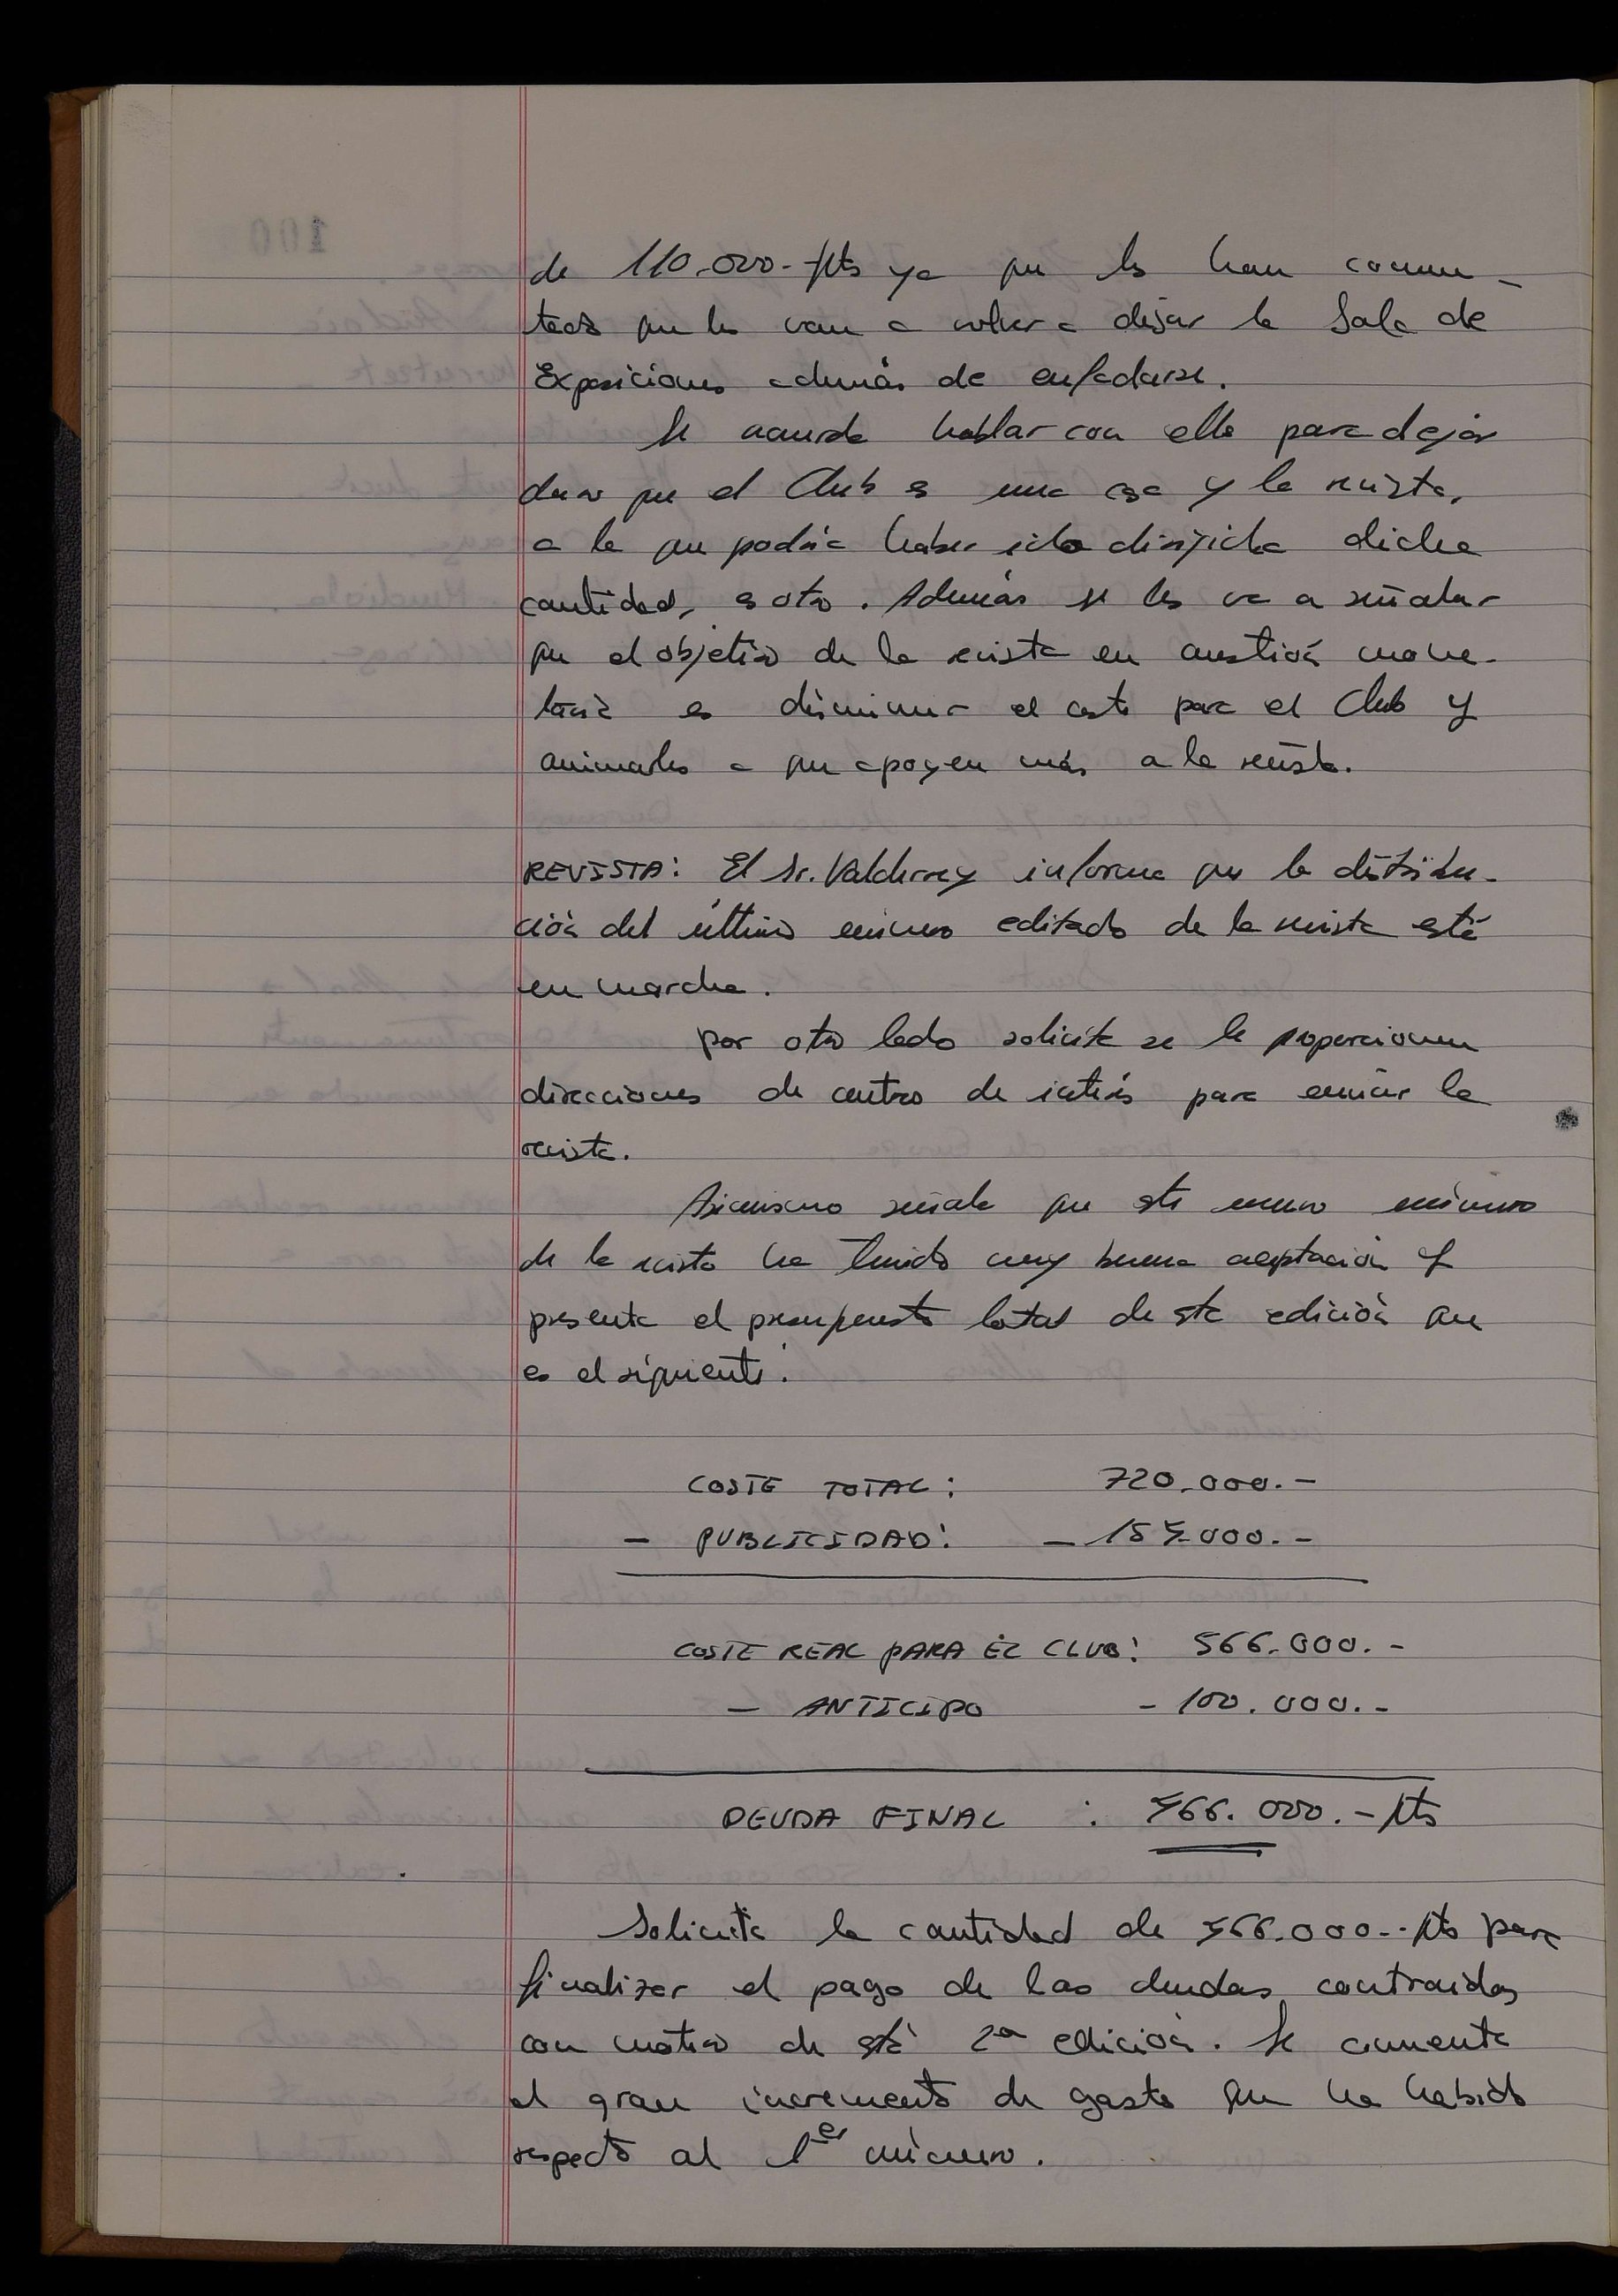 de 110.000.- pts ya que les han comen-
tado que les van a volver a dejar la Sala de
Exposiciones además de enfadarse.
Se acuerda hablar con ellos para dejar
claro que el Club es una cosa y la revista,
a la que podría haber ido dirijida dicha
cantidad, es otra. Además se les va a señalar
que el objetivo de la revista en cuestión mone-
taria es disminuir el coste para el Club y
animarles a que apoyen más a la revista.
REVISTA: El Sr. Valderrey informa que la distribu-
ción del último número editado de la revista está
en marcha.
Por otro lado solicita se le proporcionen
direcciones de centros de interés para enviar la
revista.
Asimismo señala que este nuevo número
de la revista ha tenido muy buena aceptación y
presenta el presupuesto total de esta edición que
es el siguiente:
COSTE TOTAL: 720.000.-
- PUBLICIDAD: - 154.000.-
COSTE REAL PARA EL CLUB: 566.000.-
- ANTICIPO - 100.000.-
DEUDA FINAL : 466.000.- pts
Solicita la cantidad de 466.000.- pts para
finalizar el pago de las deudas contraidas
con motivo de está 2ª edición. Se comenta
el gran incremento de gasto que ha habido
respecto al 1er número.
100